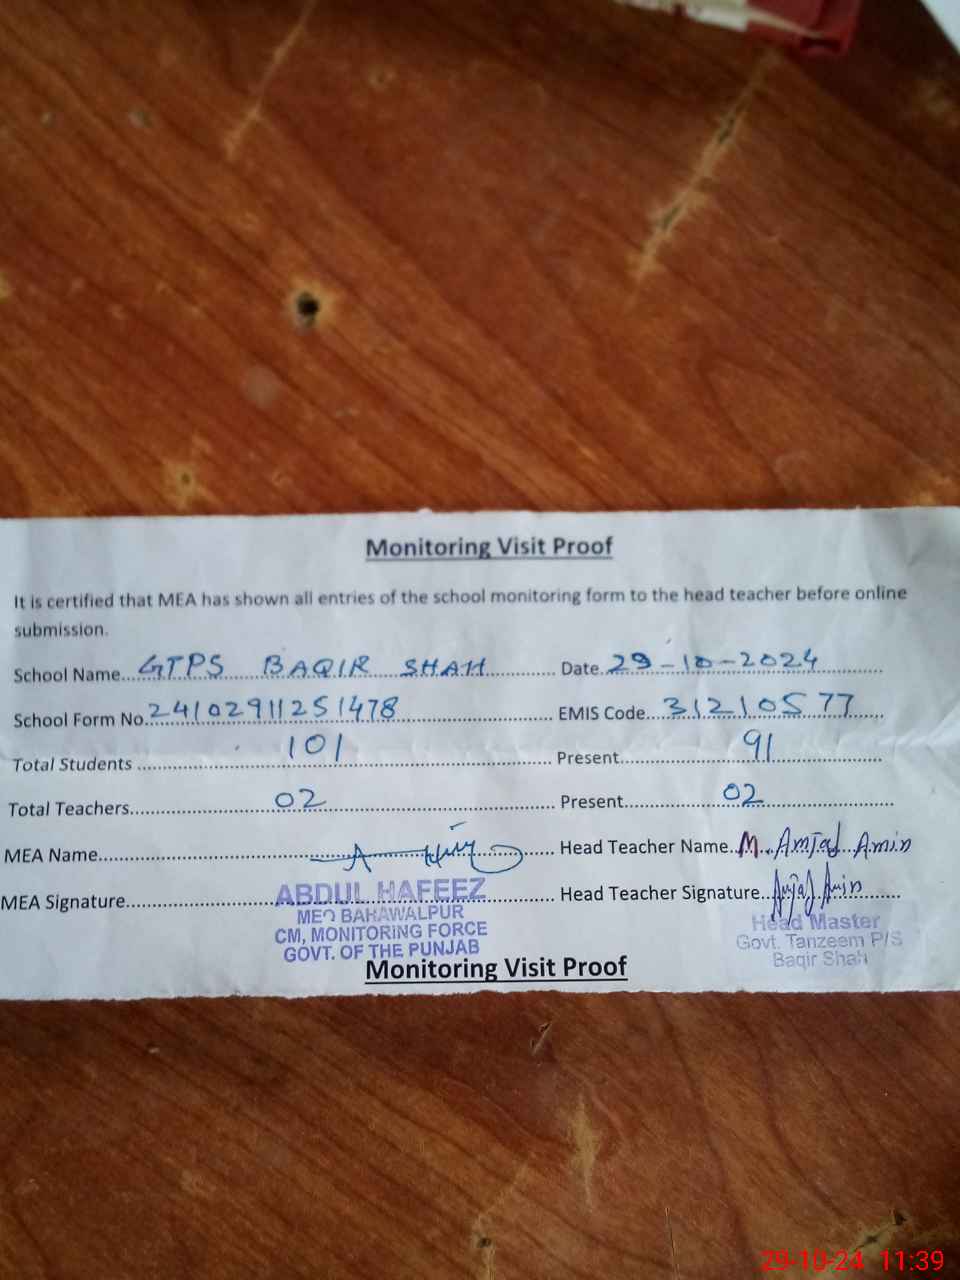 Monitoring Visit Proof
It is certified that MEA has shown all entries of the school monitoring form to the head teacher before online
submission.
School Name GTPS BAQIR SHAH Date 29-10-2024
School Form No. 24102911251478 EMIS Code 31210577
Total Students 101 Present 91
Total Teachers 02 Present 02
MEA Name Head Teacher Name M. Amjad Amin
MEA Signature Head Teacher Signature Amjad Amin
ABDUL HAFEEZ
MEO BAHAWALPUR
CM, MONITORING FORCE
GOVT. OF THE PUNJAB
Head Master
Govt. Tanzeem P/S
Baqir Shah
Monitoring Visit Proof
29-10-24 11:39